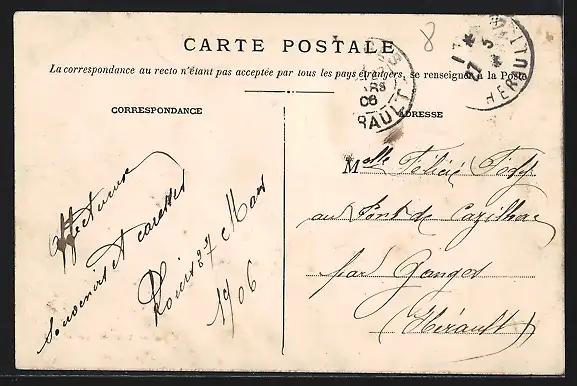 8
CARTE POSTALE
La correspondance au recto n'étant pas acceptée par tous les pays étrangers, se renseigner à la Poste
CORRESPONDANCE
Affectueux
souvenirs et caresses
27 Mars
1906
ADRESSE
Melle Félicie
au Pont de Cazilhac
par Ganges
(Hérault)
RS
06
RAULT
HERAULT